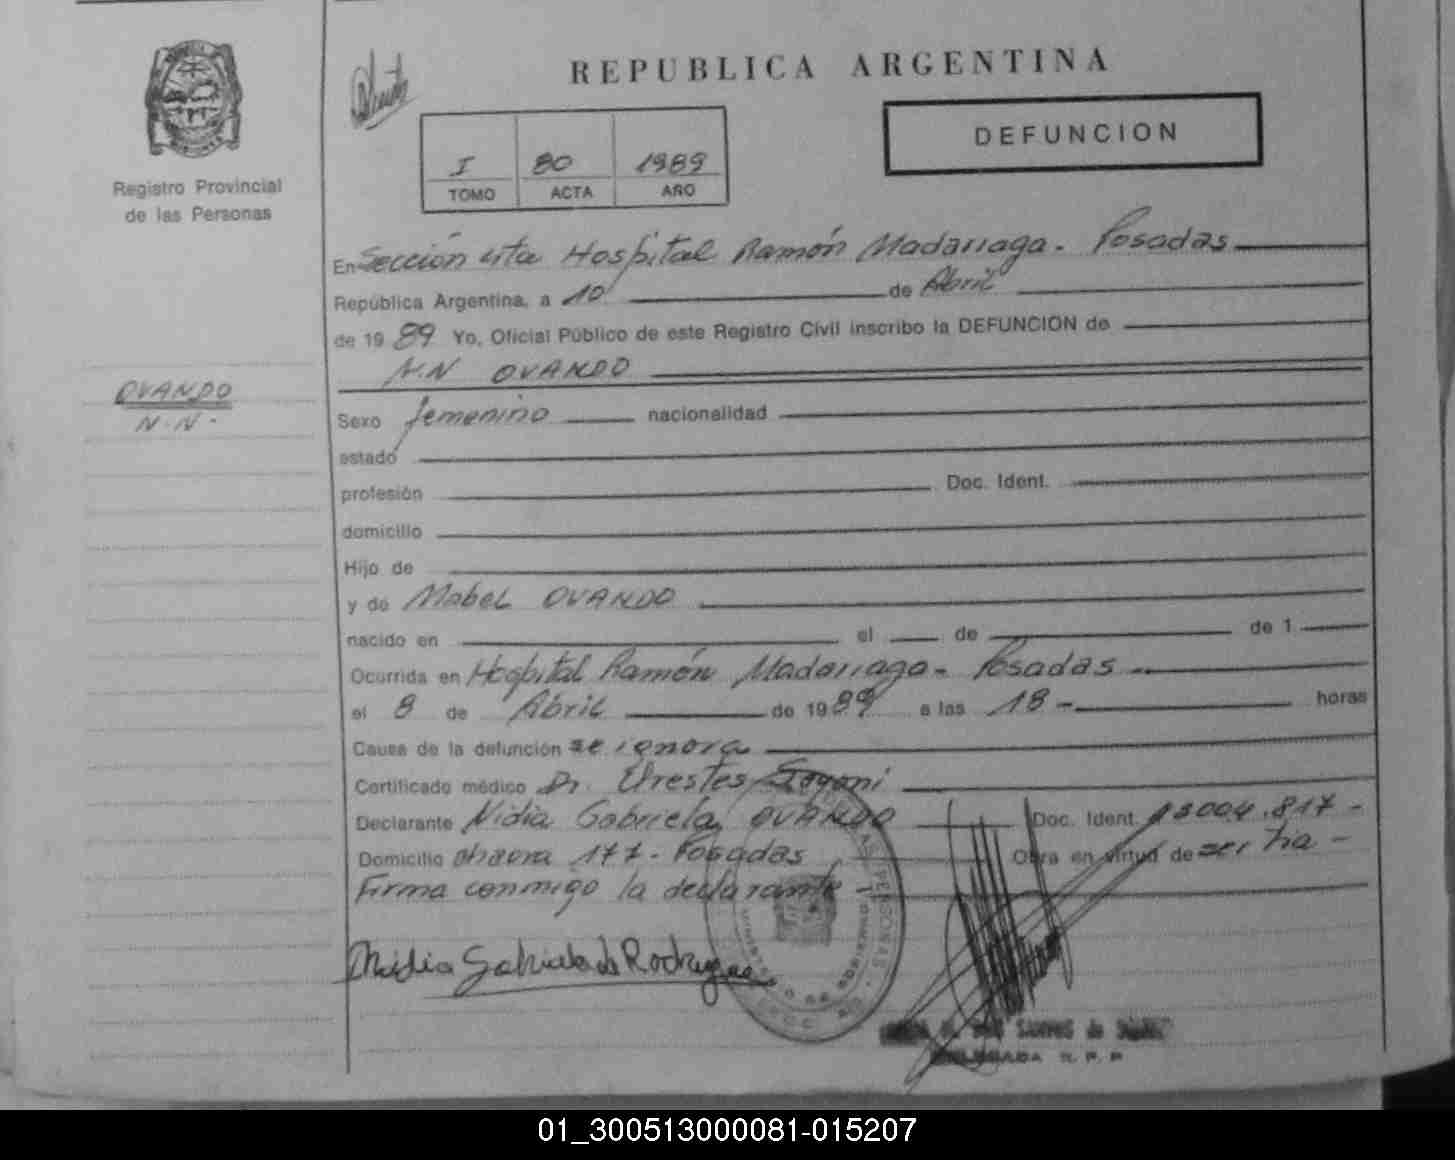 REPUBLICA ARGENTINA
DEFUNCION
I 80 1989
TOMO ACTA AÑO
Registro Provincial
de las Personas
En Sección 4ta Hospital Ramón Madariaga - Posadas
República Argentina, a 10 de Abril
de 1989 Yo, Oficial Público de este Registro Civil inscribo la DEFUNCION de
N.N OVANDO
OVANDO
N.N-
Sexo femenino nacionalidad
estado
profesión Doc. Ident.
domicilio
Hijo de
y de Mabel OVANDO
nacido en el de de 1
Ocurrida en Hospital Ramón Madariaga - Posadas
el 8 de Abril de 1989 a las 18- horas
Causa de la defunción se ignora
Certificado médico Dr.
Declarante Nidia Gabriela OVANDO Doc. Ident. 13004.817-
Domicilio 177 - Posadas Obra en virtud de ser tía -
Firma conmigo la declarante
Nidia Gabriela de Rodriguez
SANTOS de
DELEGADA R. P. P
01_300513000081-015207